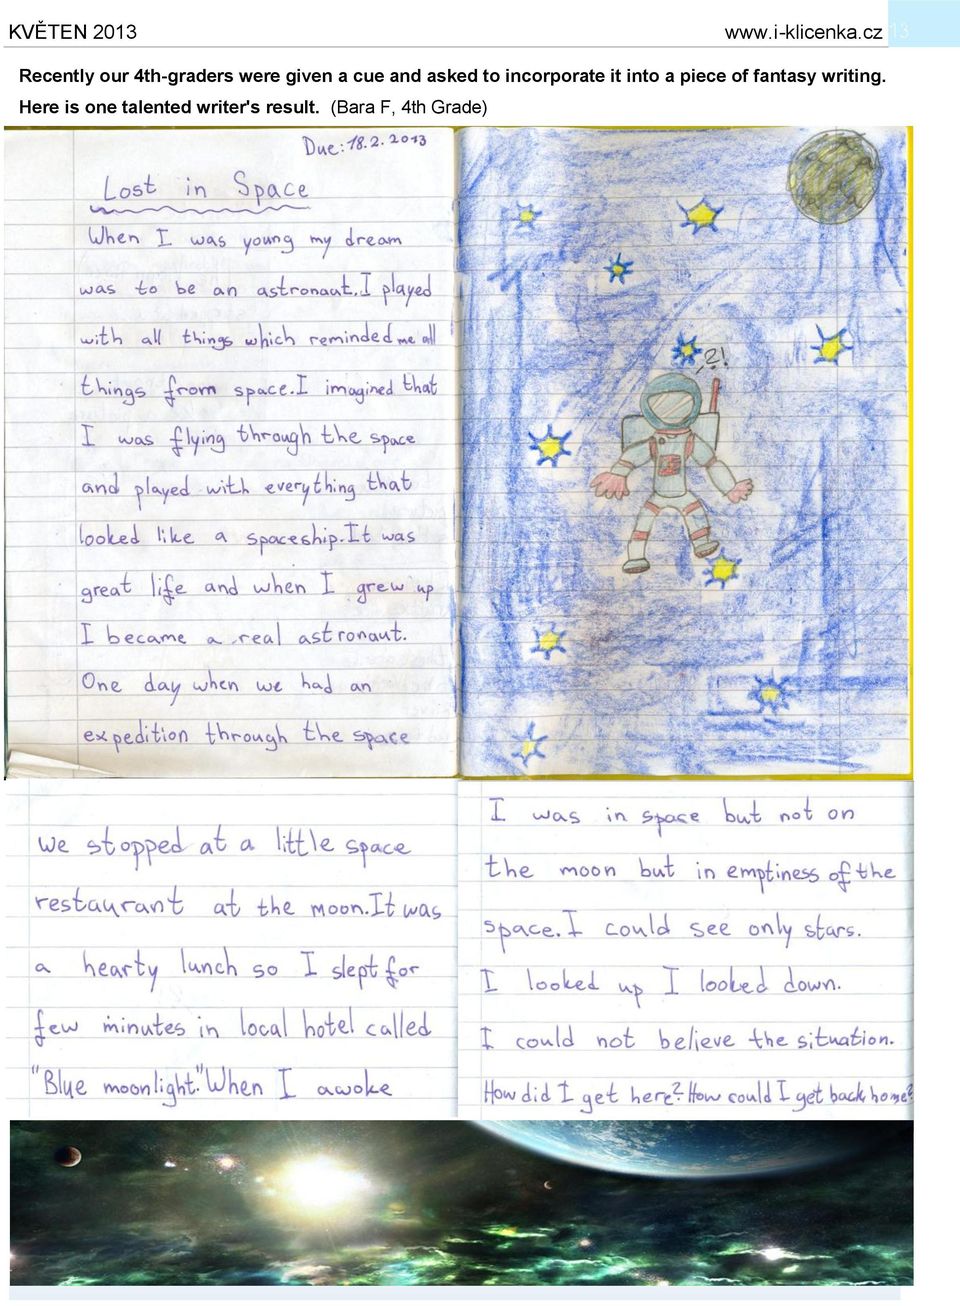 KVĚTEN 2013
www.i-klicenka.cz 13
Recently our 4th-graders were given a cue and asked to incorporate it into a piece of fantasy writing.
Here is one talented writer's result. (Bara F, 4th Grade)
Due: 18.2.2013
Lost in Space
When I was young my dream
was to be an astronaut. I played
with all things which reminded me all
things from space. I imagined that
I was flying through the space
and played with everything that
looked like a spaceship. It was
great life and when I grew up
I became a real astronaut.
One day when we had an
expedition through the space
?!
we stopped at a little space
restaurant at the moon. It was
a hearty lunch so I slept for
few minutes in local hotel called
"Blue moonlight." When I awoke
I was in space but not on
the moon but in emptiness of the
space. I could see only stars.
I looked up I looked down.
I could not believe the situation.
How did I get here? How could I get back home?